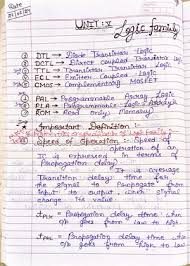 Date
UNIT:-V
Logic family
① DTL → Diode Transistor Logic
② DCTL → Direct Coupled Transistor
③ TTL → Transistor Transistor Logic
④ ECL → Emitter Coupled Logic
⑤ CMOS → Complementary MOSFET
① PAL → Programmable Array Logic
② PLA → Programmable Logic Array
③ ROM → Read Only Memory
★ Important Definition :-
① Speed of Operation :- Speed of
operation of an
IC is expressed in terms of
Propagation delay.
It is average
Transition delay time for
the signal to Propagate from
input to output when signal
change its value.
tPLH = Propagation delay time when
o/p goes from low to
tPHL = Propagation delay time when
o/p goes from High to low